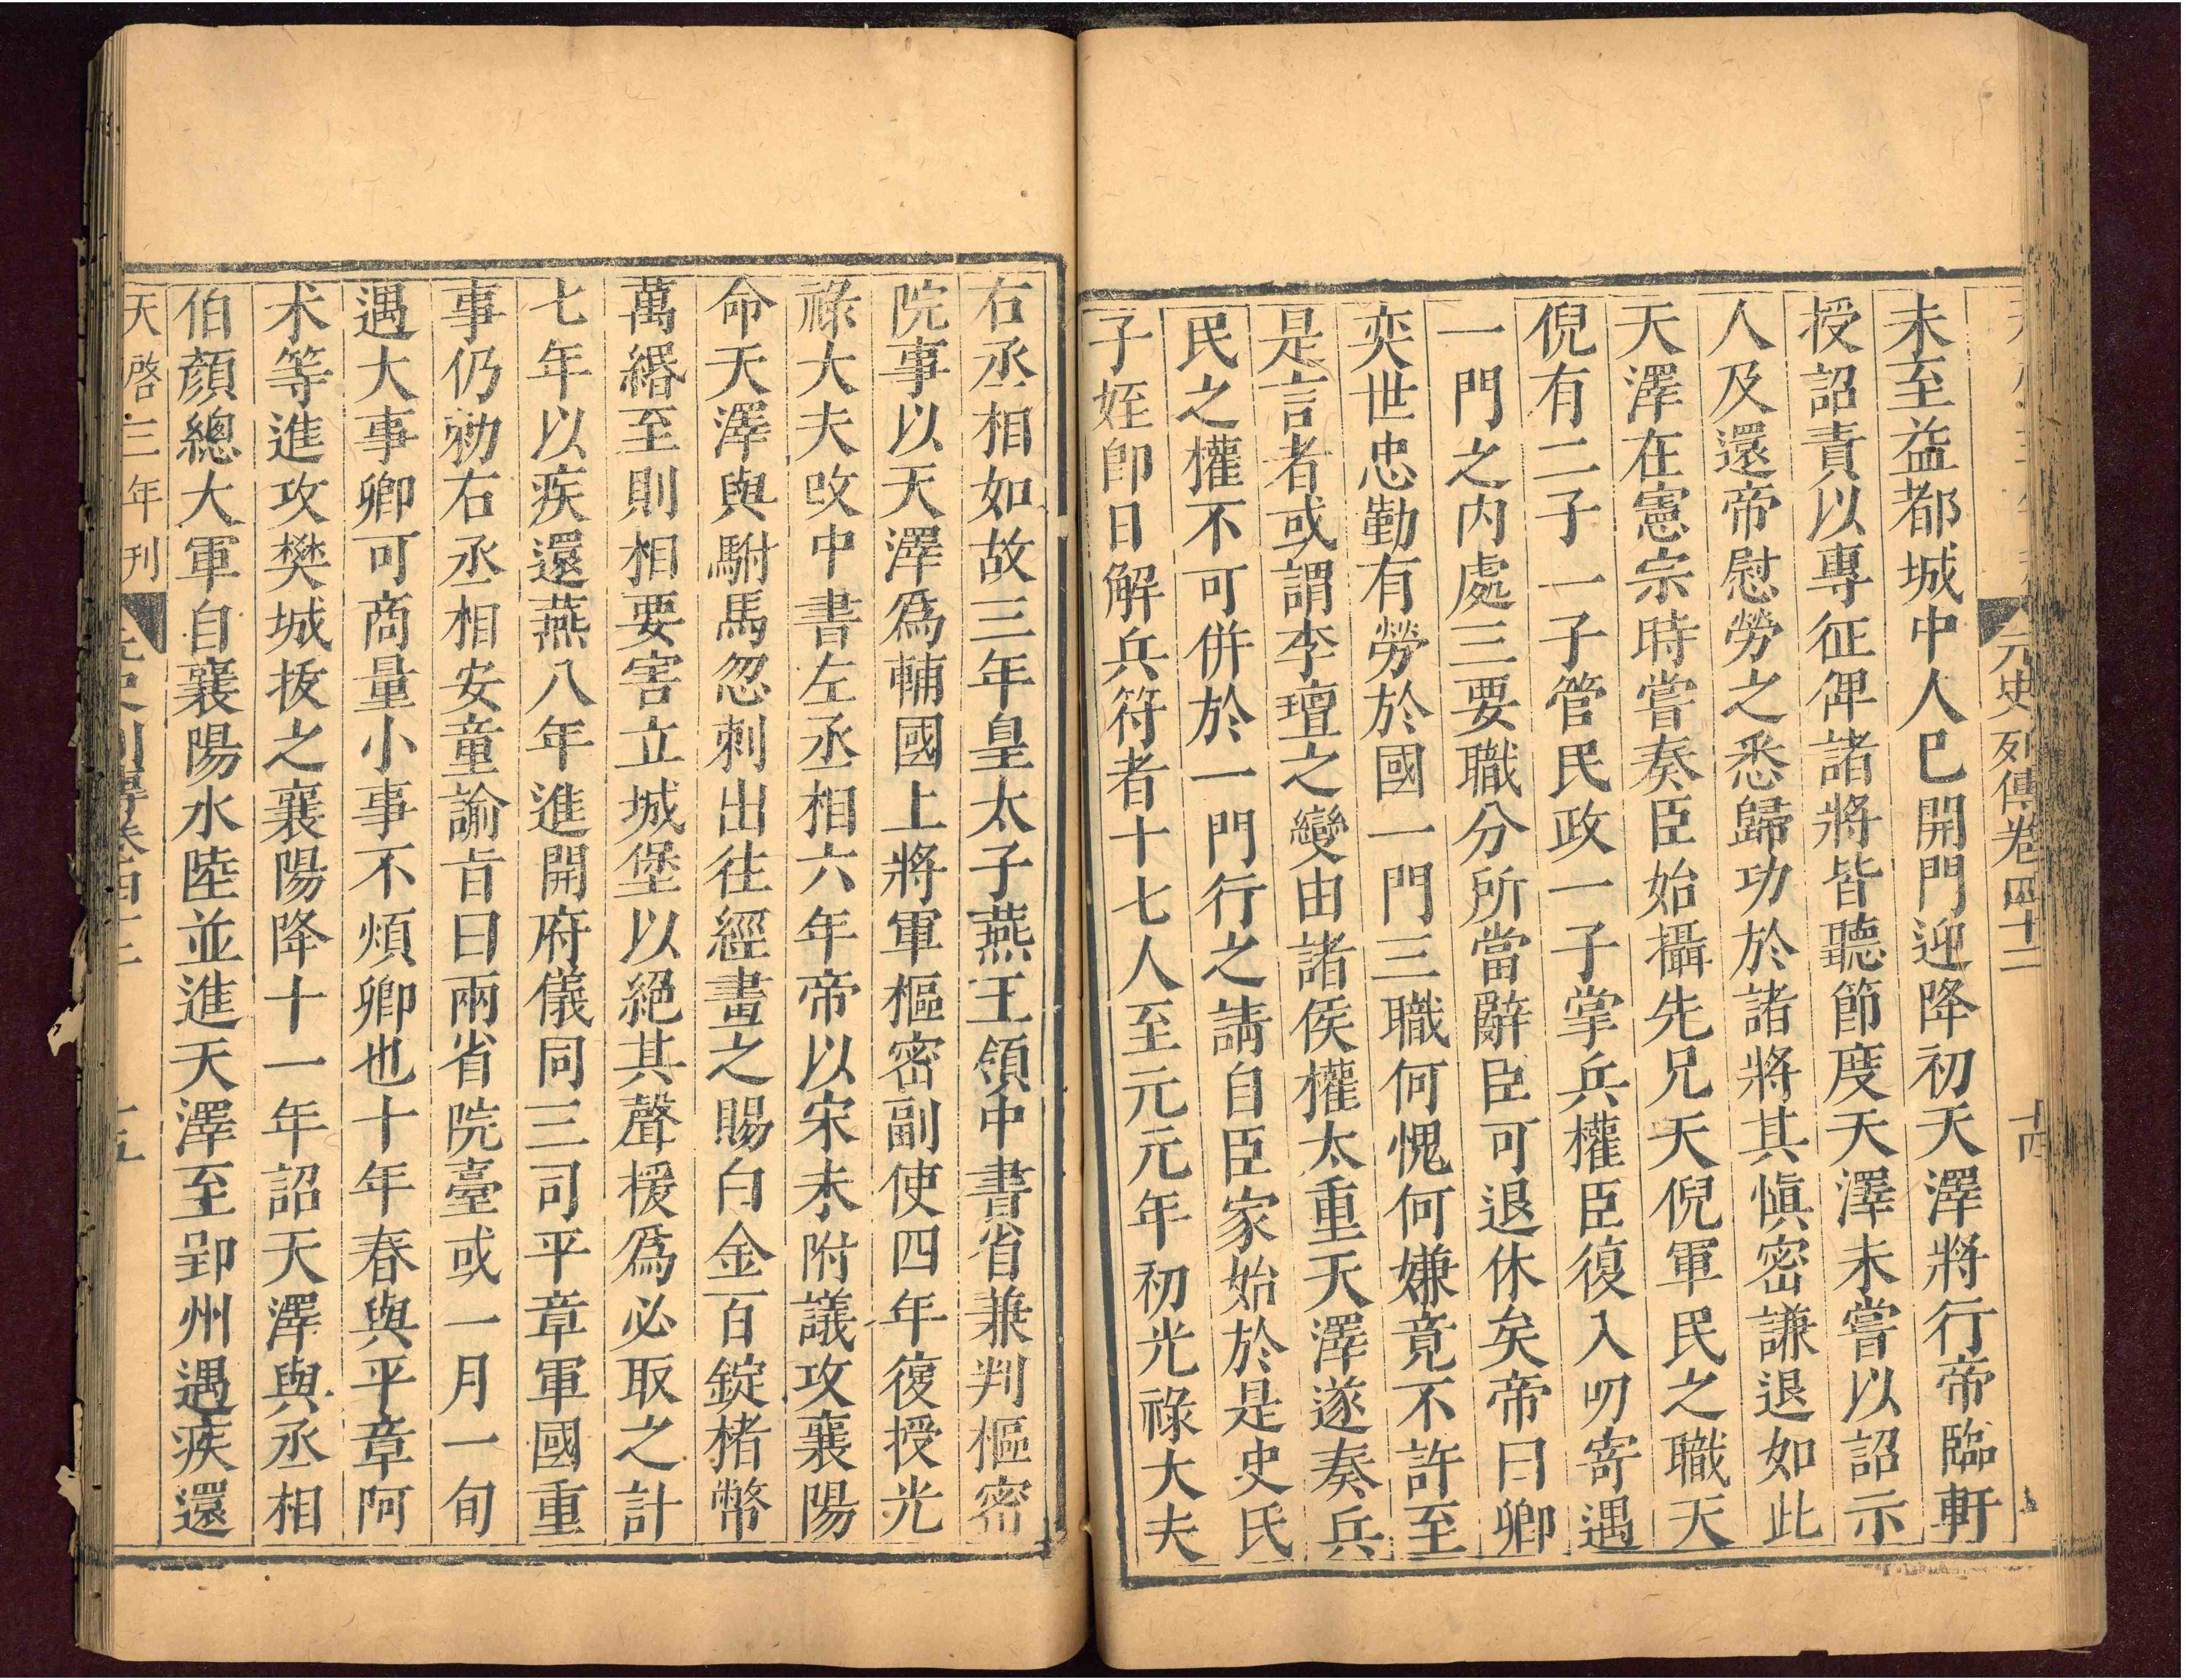 元史列傳卷四十二 十四
未至益都城中人已開門迎降初天澤將行帝臨軒
授詔責以專征俾諸將皆聽節度天澤未嘗以詔示
人及還帝慰勞之悉歸功於諸將其愼密謙退如此
天澤在憲宗時嘗奏臣始攝先兄天倪軍民之職天
倪有二子一子管民政一子掌兵權臣復入叨寄遇
一門之内處三要職分所當辭臣可退休矣帝曰卿
奕世忠勤有勞於國一門三職何愧何嫌竟不許至
是言者或謂李璮之變由諸侯權太重天澤遂奏兵
民之權不可併於一門行之請自臣家始於是史氏
子姪即日解兵符者十七人至元元年初光祿大夫
右丞相如故三年皇太子燕王領中書省兼判樞密
院事以天澤爲輔國上將軍樞密副使四年復授光
祿大夫改中書左丞相六年帝以宋未附議攻襄陽
命天澤與駙馬忽刺出往經畫之賜白金百錠楮幣
萬緡至則相要害立城堡以絕其聲援爲必取之計
七年以疾還燕八年進開府儀同三司平章軍國重
事仍勑右丞相安童諭旨曰兩省院臺或一月一旬
遇大事卿可商量小事不煩卿也十年春與平章阿
术等進攻樊城拔之襄陽降十一年詔天澤與丞相
伯顏總大軍自襄陽水陸並進天澤至郢州遇疾還
天啓三年刊 元史列傳卷四十二 十五